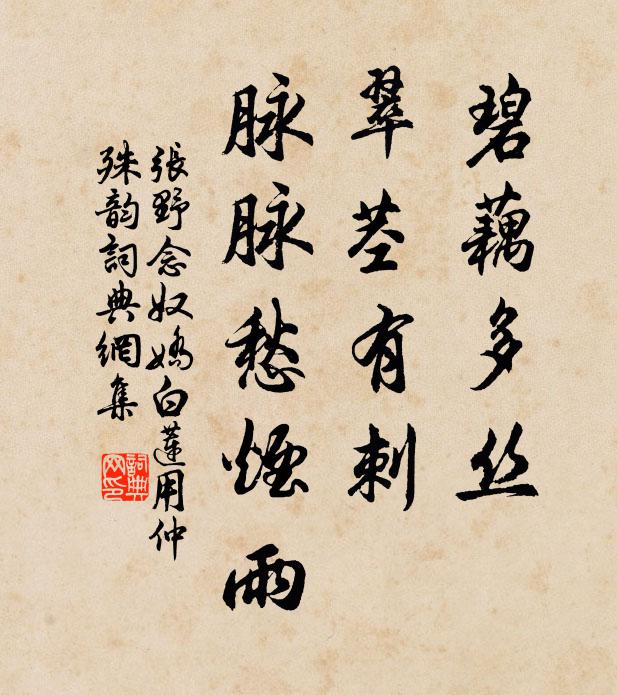 碧藕多丝
翠茎有刺
脉脉愁烟雨
張野念奴嬌白蓮用仲
殊韵詞典網集
詞典网印